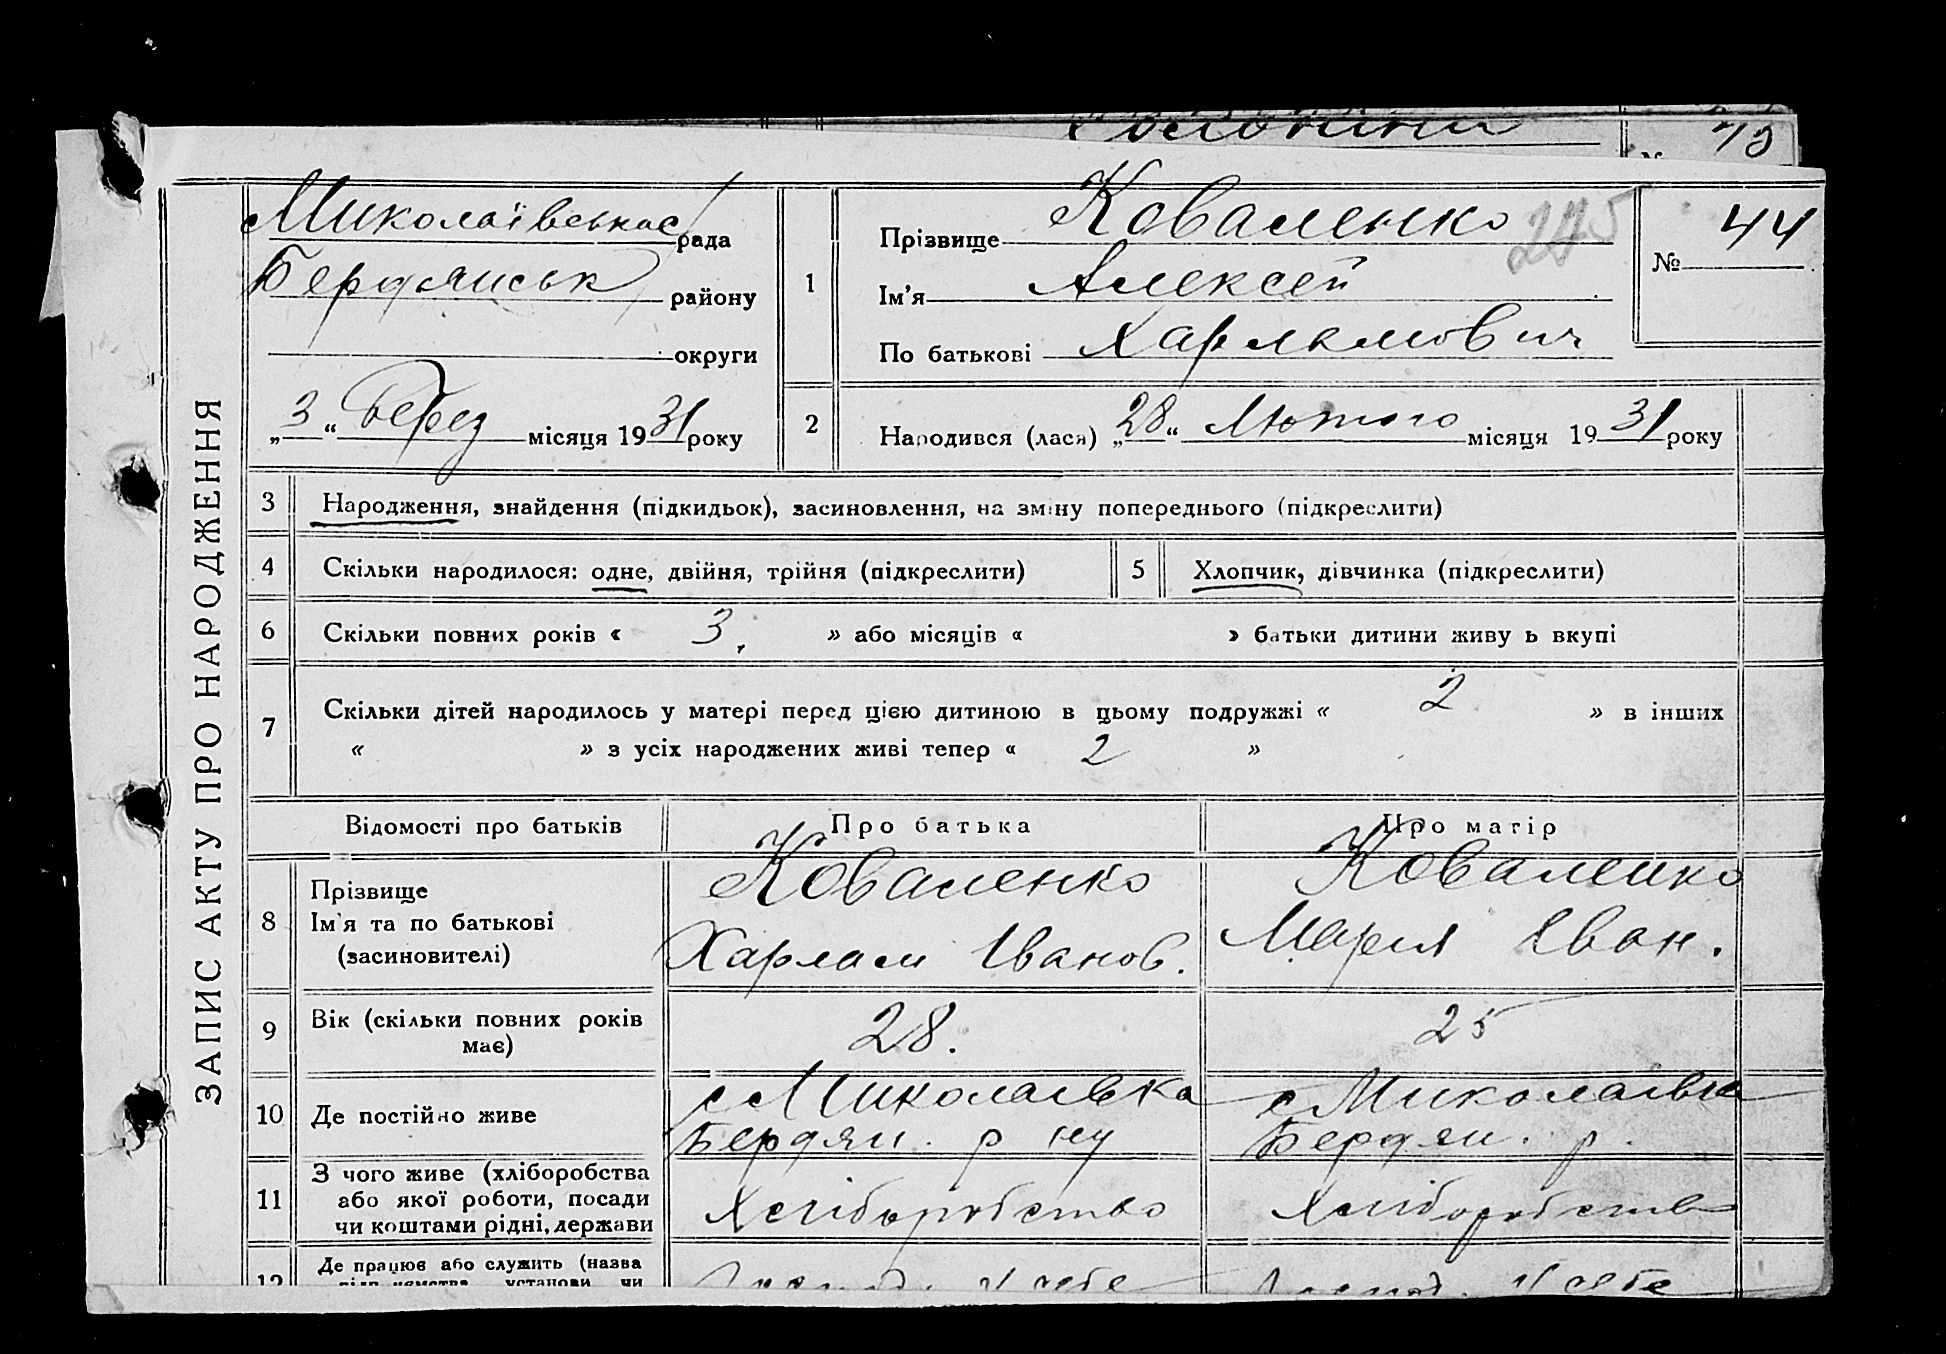 ЗАПИС АКТУ ПРО НАРОДЖЕННЯ
Миколаївська рада
Бердянськ району
округи
„3“ Берез місяця 1931 року
1
Прізвище Коваленко
Ім'я Алексей
По батькові Харламович
245
№ 44
2
Народився (лася) „28“ Лютого місяця 1931 року
3 Народження, знайдення (підкидьок), засиновлення, на зміну попереднього (підкреслити)
4 Скільки народилося: одне, двійня, трійня (підкреслити)
5 Хлопчик, дівчинка (підкреслити)
6 Скільки повних років « 3. » або місяців « » батьки дитини живуть вкупі
7 Скільки дітей народилось у матері перед цією дитиною в цьому подружжі « 2 » в інших
« » з усіх народжених живі тепер « 2 »
Відомості про батьків
Про батька
Про матір
8
Прізвище
Ім'я та по батькові
(засиновителі)
Коваленко
Харлам Іванов.
Коваленко
Мария Иван.
9
Вік (скільки повних років
має)
28.
25
10 Де постійно живе
с Миколаївка
Бердян. р ну
с Миколаївка
Бердян. р.
11
З чого живе (хліборобства
або якої роботи, посади
чи коштами рідні, держави
Хліборобство
Хліборобство
12
Де працює або служить (назва
підприємства, установи чи
у себе
у себе